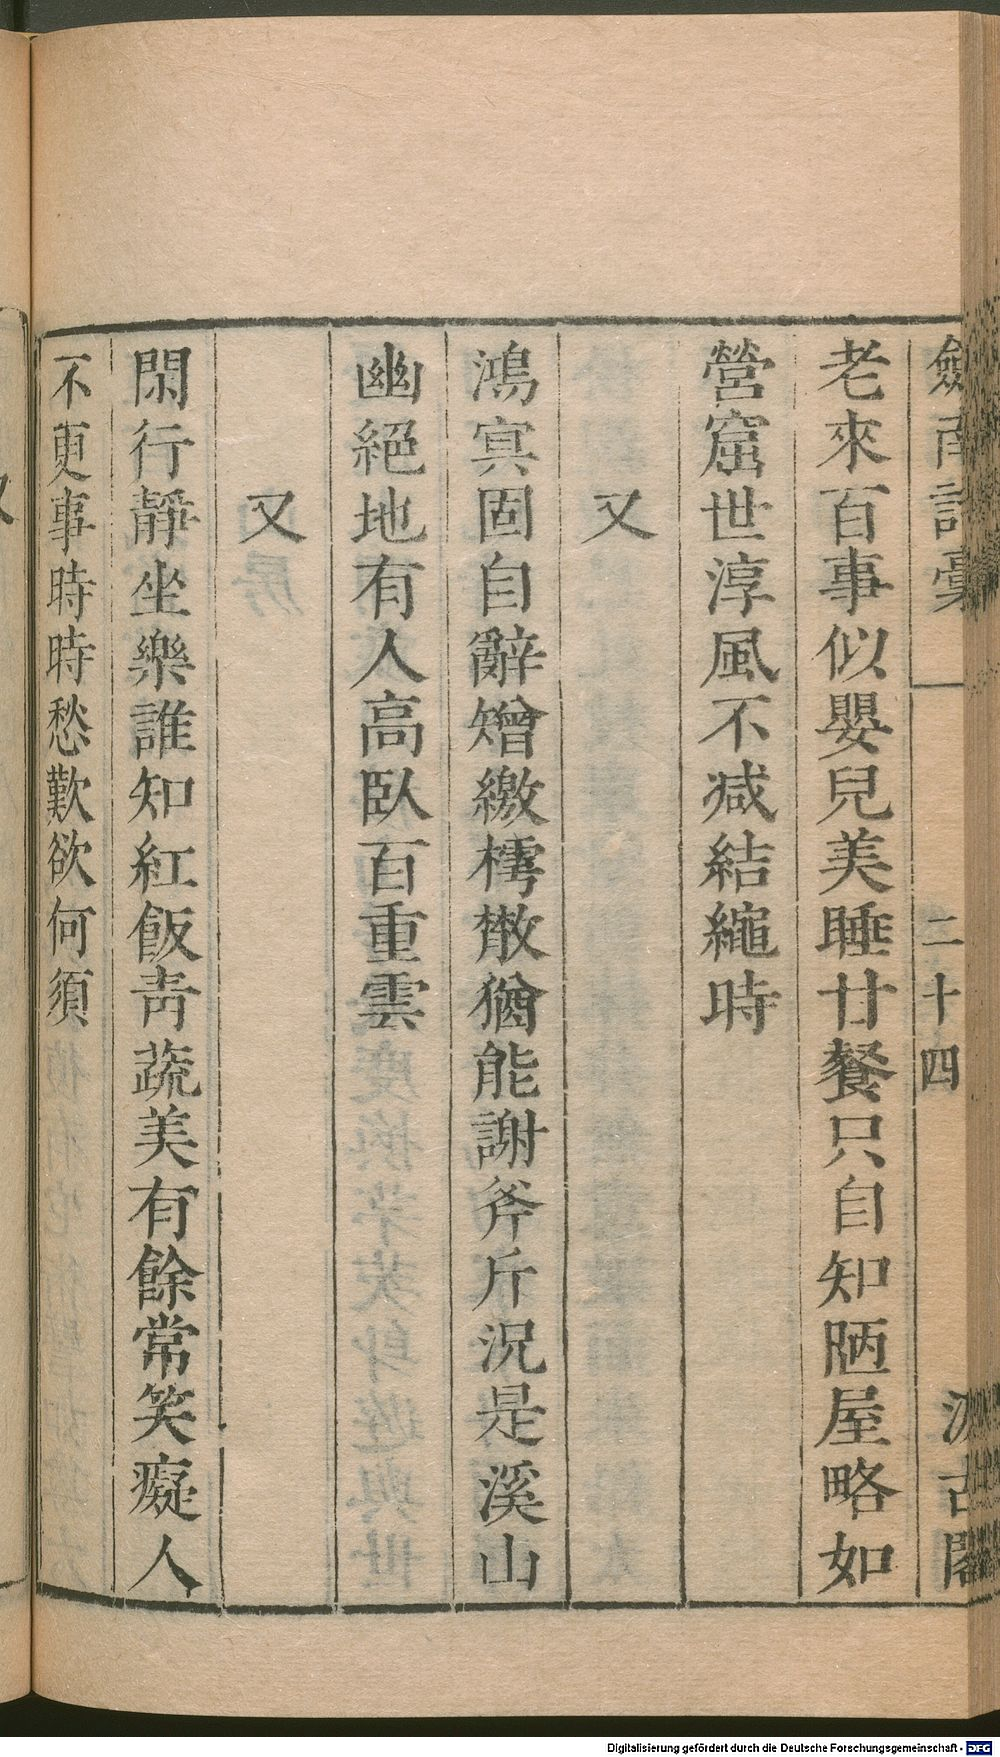 劍南詩稾 二十四 汲古閣
老來百事似嬰兒美睡甘餐只自知陋屋略如
營窟世淳風不减結繩時
又
鴻寘固自辭矰繳樗散猶能謝斧斤況是溪山
幽絕地有人高臥百重雲
又
閑行靜坐樂誰知紅飯靑蔬美有餘常笑癡人
不更事時時愁歎欲何須
Digitalisierung gefördert durch die Deutsche Forschungsgemeinschaft - DFG